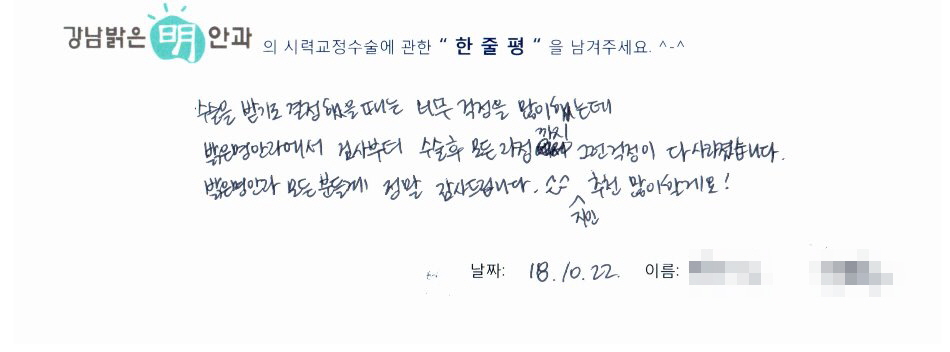 강남밝은明안과 의 시력교정수술에 관한 “ 한 줄 평 “ 을 남겨주세요. ^-^
수술을 받기로 결정했을 때는 너무 걱정을 많이 했는데
밝은명안과에서 검사부터 수술후 모든 과정까지 그런걱정이 다 사라졌습니다.
밝은명안과 모든 분들께 정말 감사드립니다. ^^ 지인 추천 많이할게요!
날짜: 18.10.22. 이름: